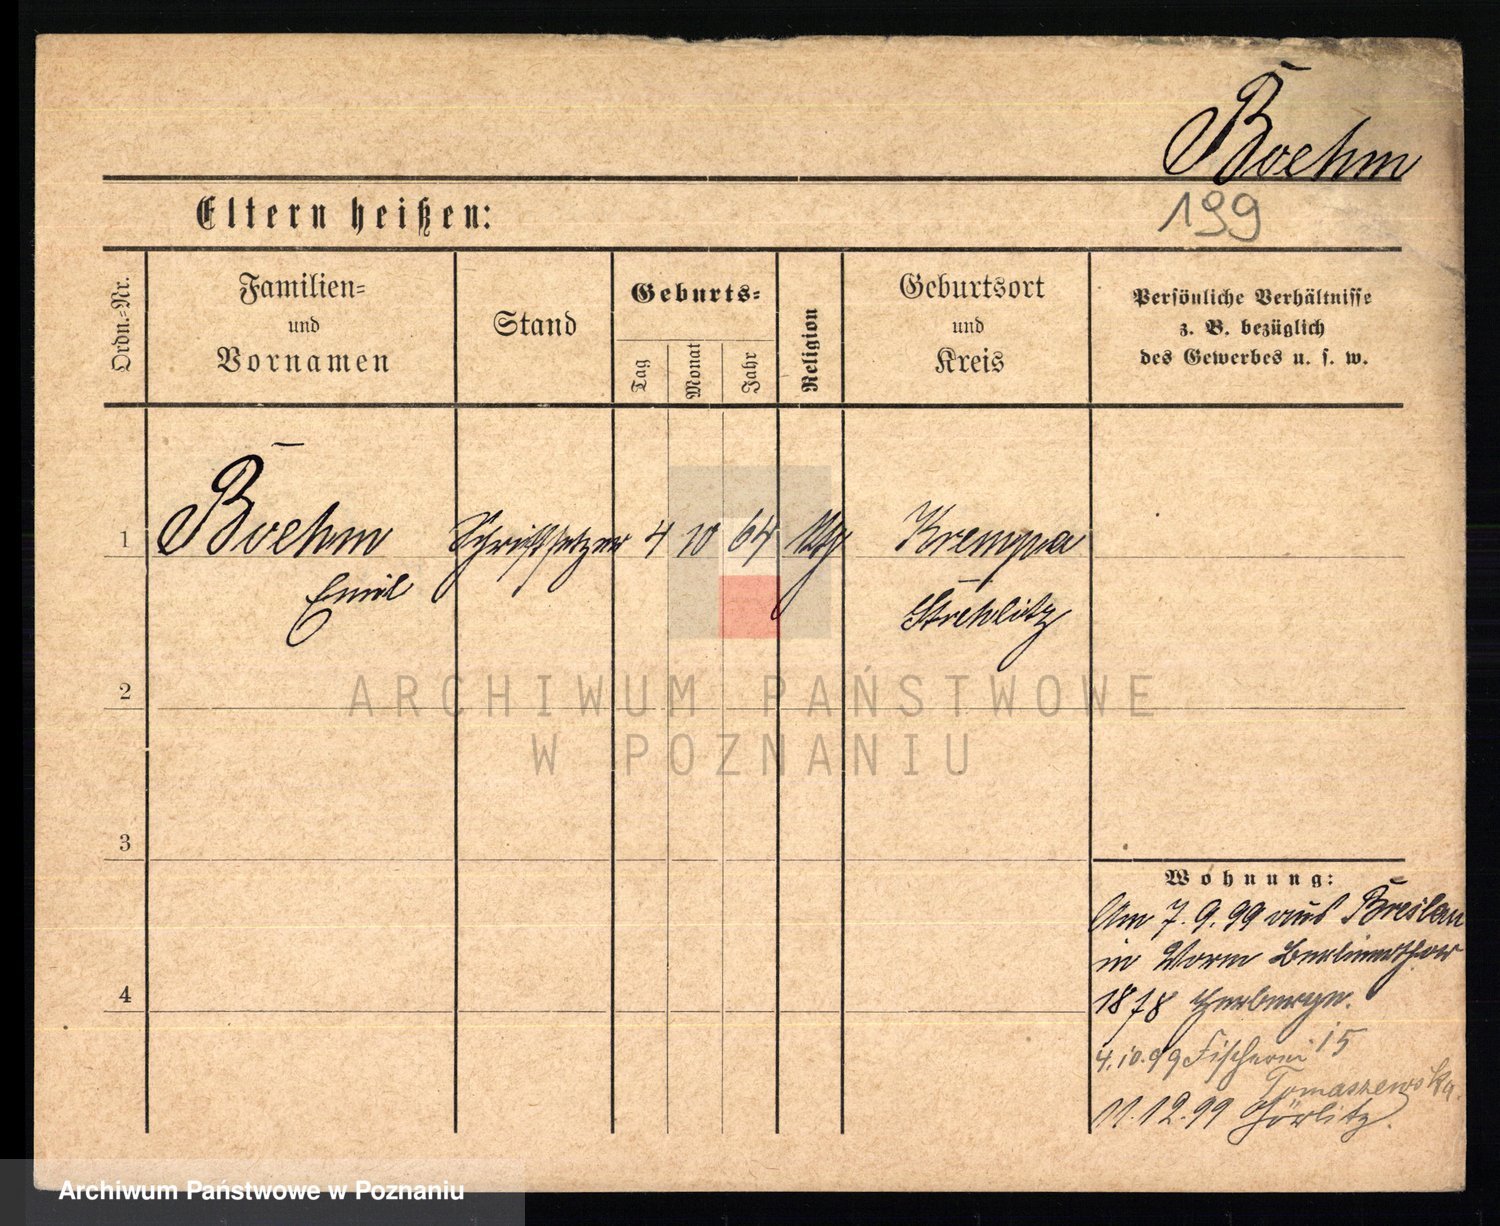 Boehm
Eltern heißen:
199
Ordn.-Nr.
Familien-
und
Vornamen
Stand
Geburts-
Tag
Monat
Jahr
Religion
Geburtsort
und
Kreis
Persönliche Verhältnisse
z. B. bezüglich
des Gewerbes u. s. w.
1
Boehm
Emil
Schriftsetzer
4
10
64
Krempa
Strehlitz
2
ARCHIWUM PAŃSTWOWE
W POZNANIU
3
4
Wohnung:
Am 7.9.99 aus Breslau
in Worm Berlinerthor
1878 Herberge.
4.10.99 Fischerei 15
Tomaszewska.
11.12.99 Görlitz.
Archiwum Państwowe w Poznaniu